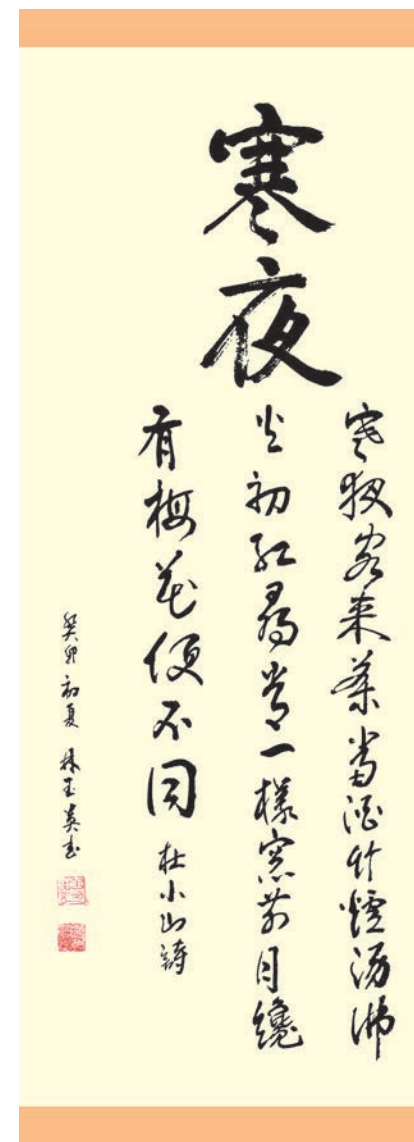 寒夜
寒夜客來茶當酒竹爐湯沸
火初紅尋常一樣窓前月纔
有梅花便不同
杜小山詩
癸卯初夏 林玉英書